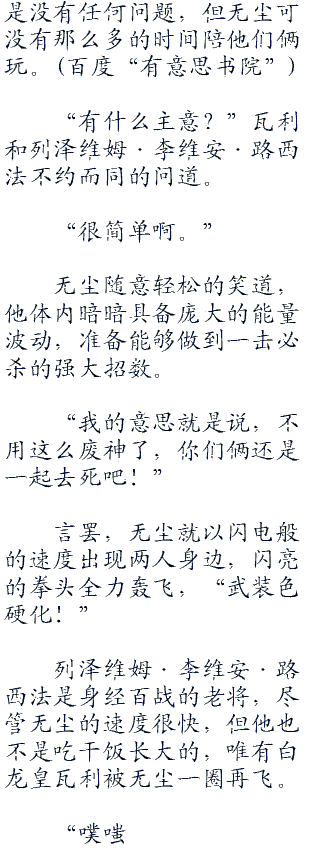 是没有任何问题，但无尘可
没有那么多的时间陪他们俩
玩。(百度“有意思书院”)
“有什么主意？”瓦利
和列泽维姆·李维安·路西
法不约而同的问道。
“很简单啊。”
无尘随意轻松的笑道，
他体内暗暗具备庞大的能量
波动，准备能够做到一击必
杀的强大招数。
“我的意思就是说，不
用这么废神了，你们俩还是
一起去死吧！”
言罢，无尘就以闪电般
的速度出现两人身边，闪亮
的拳头全力轰飞，“武装色
硬化！”
列泽维姆·李维安·路
西法是身经百战的老将，尽
管无尘的速度很快，但他也
不是吃干饭长大的，唯有白
龙皇瓦利被无尘一圈再飞。
“噗嗤